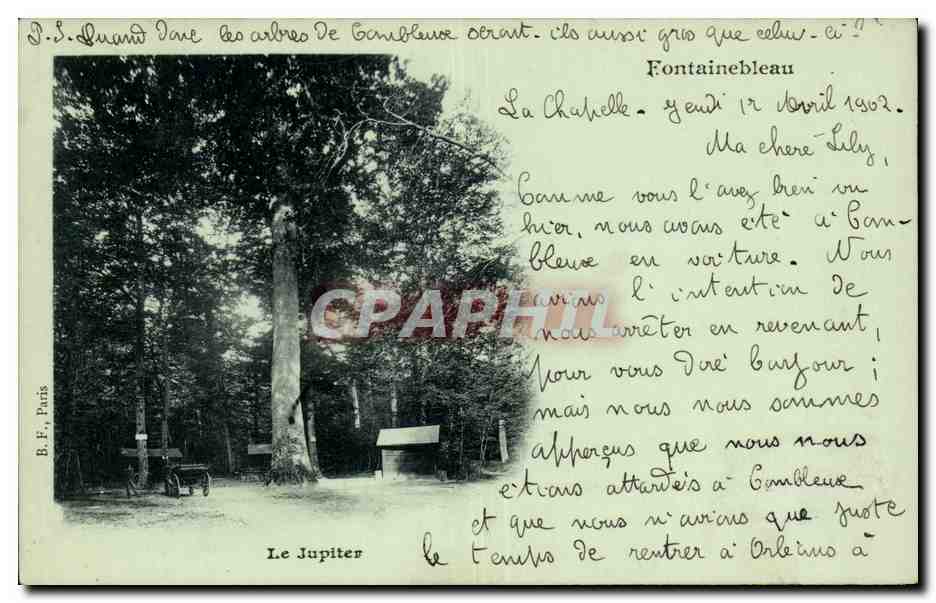 P.S. Quand donc les arbres de Combleux seront-ils aussi gros que celui-ci?
Fontainebleau
La Chapelle - Jeudi 17 Avril 1902.
Ma chere Lily,
Comme vous l'avez bien vu
hier, nous avons été à Com-
bleux en voiture. Nous
avions l'intention de
nous arrêter en revenant,
pour vous dire bonjour ;
mais nous nous sommes
apperçus que nous nous
étions attardés à Combleux
et que nous n'avions que juste
le temps de rentrer à Orléans à
CPAPHIL
B. F., Paris
Le Jupiter